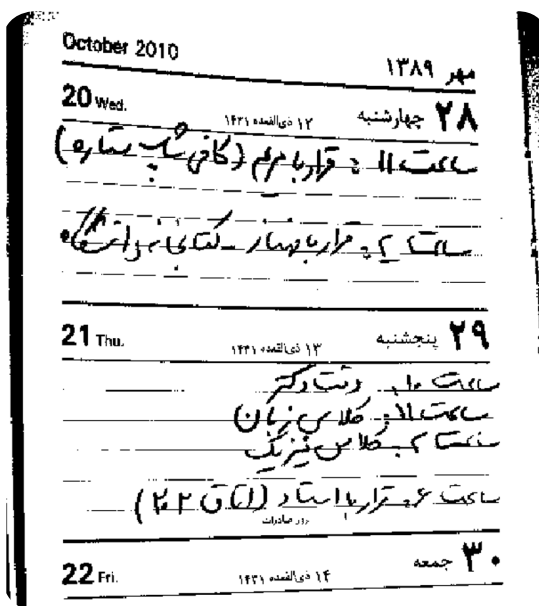 October 2010 مهر ۱۳۸۹
20 Wed. ۱۲ ذی‌القعده ۱۴۳۱ چهارشنبه ۲۸
ساعت ۱۱ : قرار با مریم (کافی شاپ ستاره)
ساعت ۲ : قرار با مهناز - کتابخانه دانشگاه
21 Thu. ۱۳ ذی‌القعده ۱۴۳۱ پنجشنبه ۲۹
ساعت ۱۰ : وقت دکتر
ساعت ۱۱ : کلاس زبان
ساعت ۲ : کلاس فیزیک
ساعت ۶ : قرار با استاد (اتاق ۲۰۲)
روز صادرات
22 Fri. ۱۴ ذی‌القعده ۱۴۳۱ جمعه ۳۰